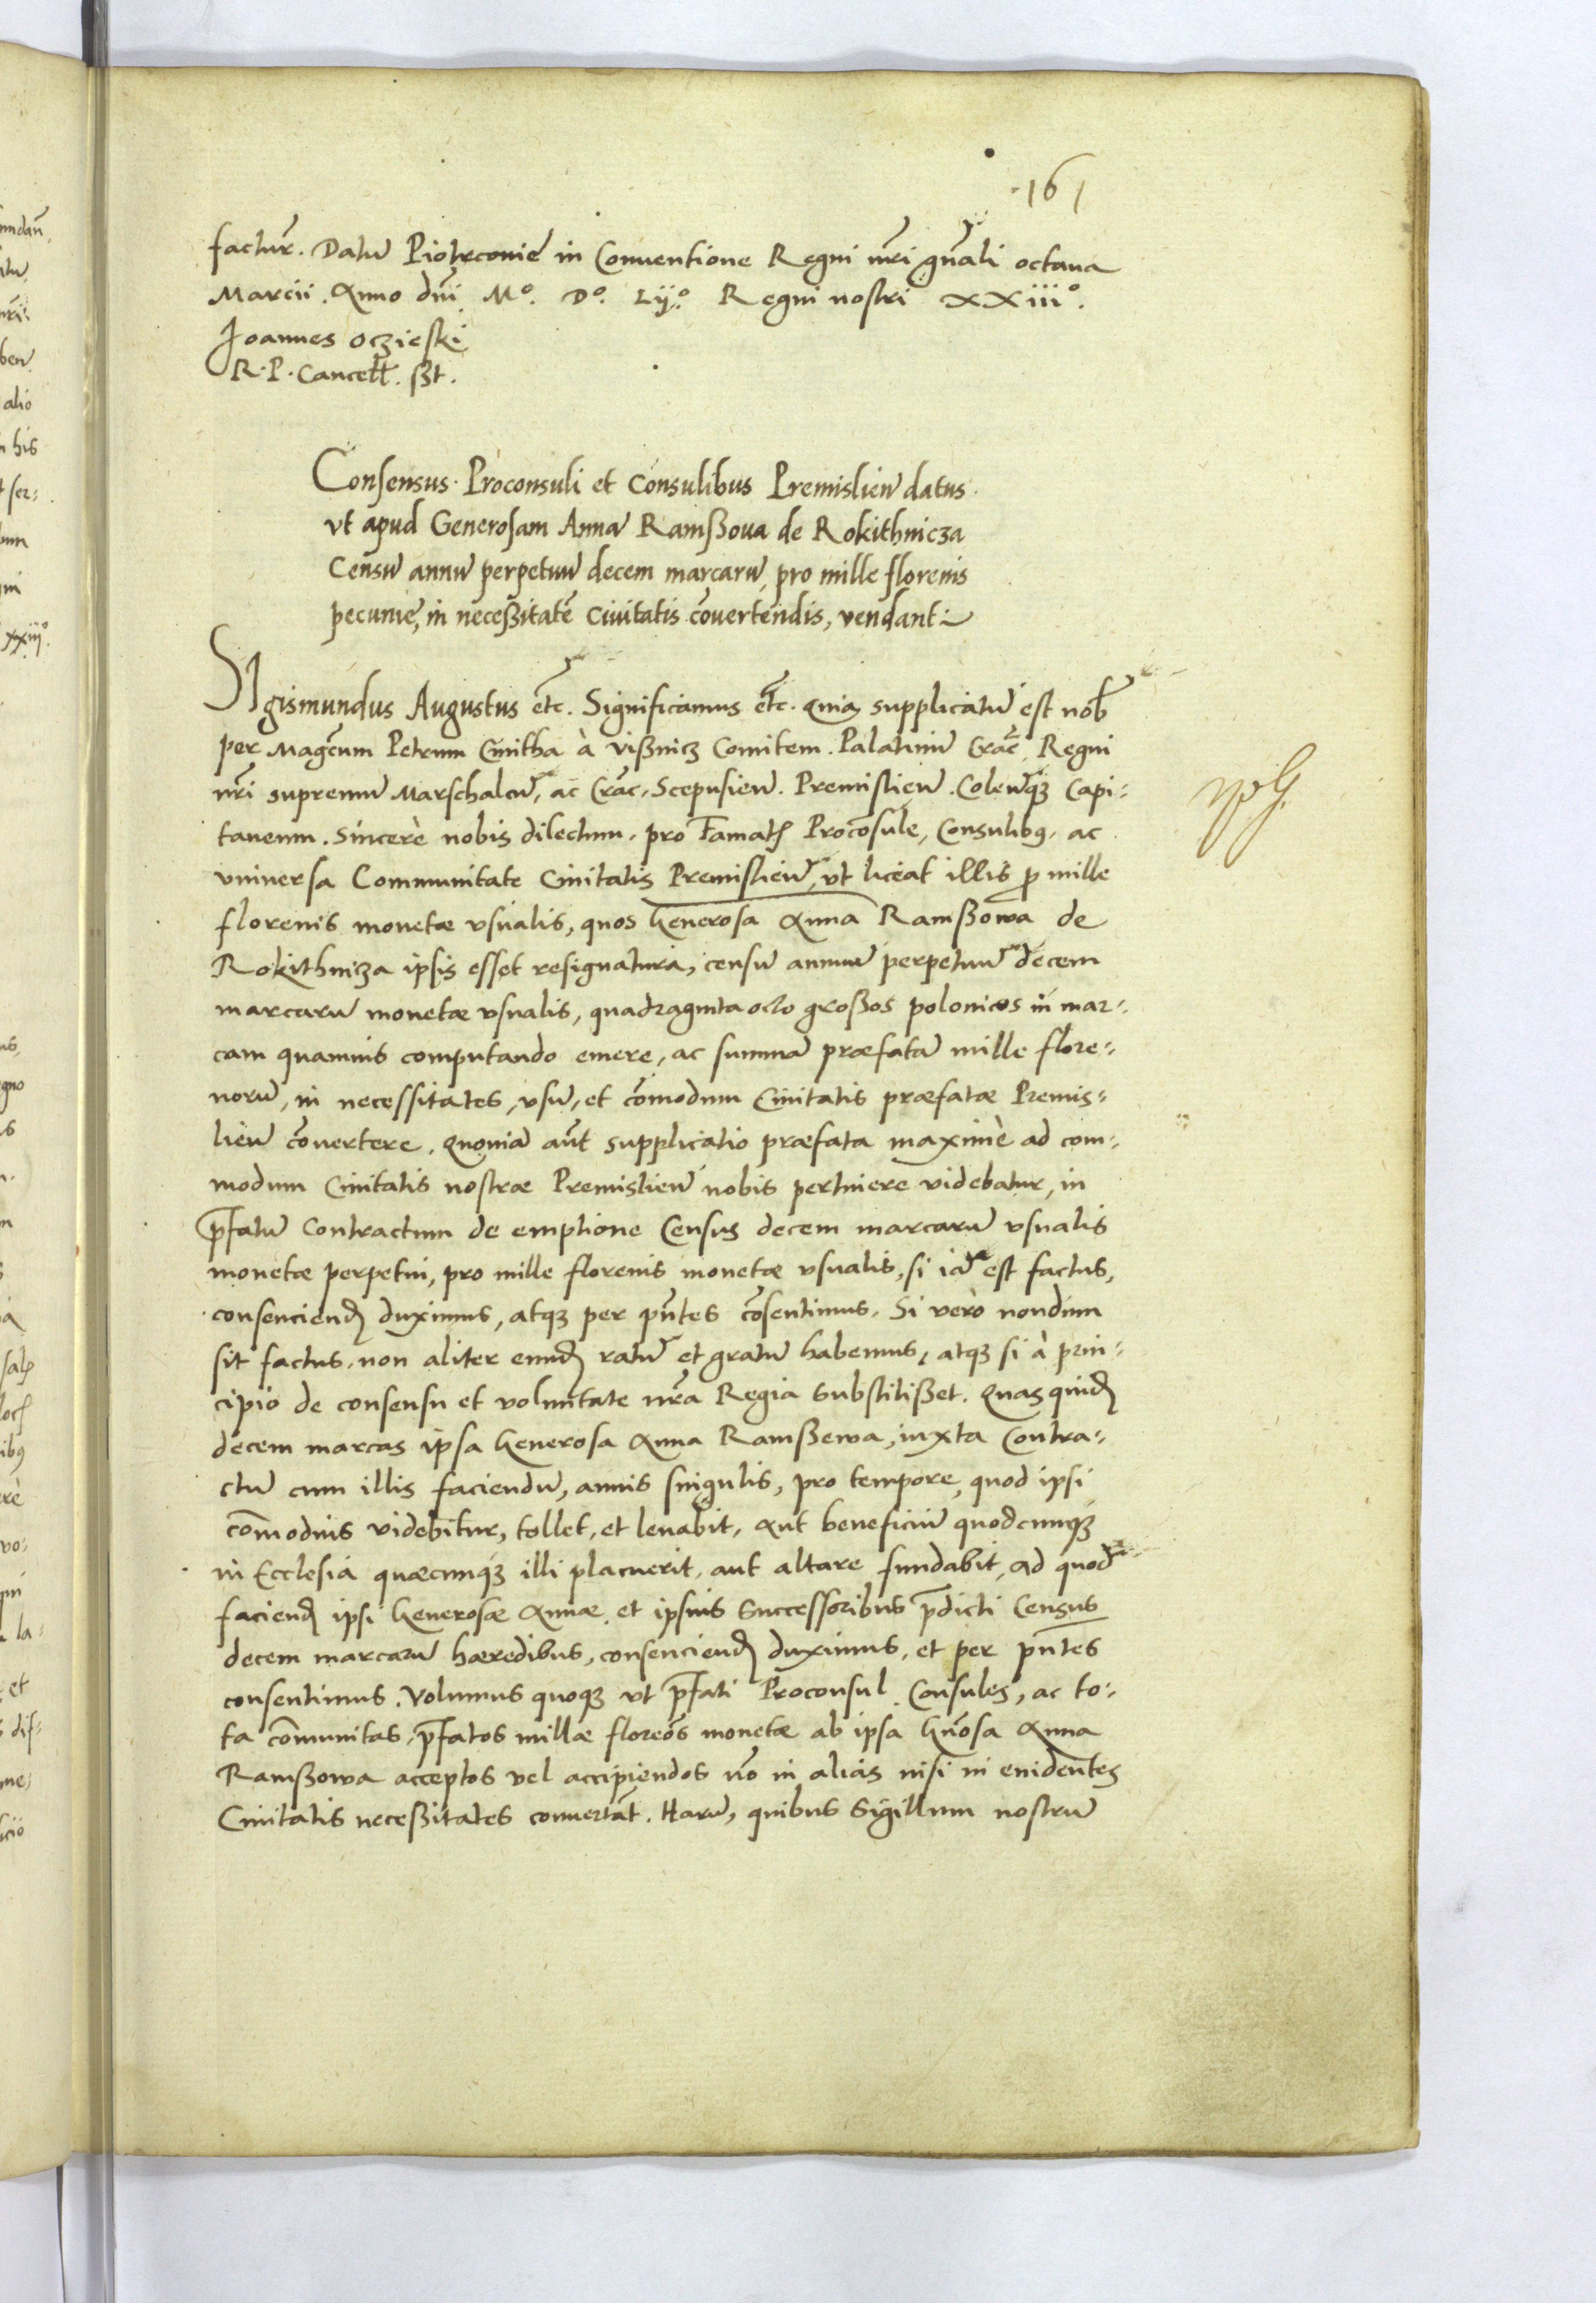 161
factur̄. Datū Piotrconiē in Conuentione Regni nr̄i gn̄ali octaua
Marcii. Anno dn̄i M°. D°. Lij°. Regni nostri XXiii°.
Joannes Oczieski
R. P. Cancell. sst.
Consensus Proconsuli et Consulibus Premislien̄ datus
vt apud Generosam Annā Ramßoua de Rokithnicza
Censū annū perpetuū decem marcarū pro mille florenis
pecuniē, in neceßitatē Ciuitatis cōuertēndis, vendant
SIgismundus Augustus etc. Significamus etc. quia supplicatū est nob
per Maḡcum Petrum Cmitha à Vißnicz Comitem. Palatinū Crac̄. Regni
nr̄i supremū Marschalcū, ac Crac̄. Scepusien̄. Premislien̄. Colen̄qꝫ Capi-
taneum. Sincerè nobis dilectum. pro Famatꝭ Procōsule, Consulibꝰ, ac
vniuersa Communitate Ciuitatis Premislien̄, vt liceat illis ꝓ mille
florenis monetæ vsualis, quos Generosa Anna Ramßowa de
Rokithnicza ipsis esset resignatura, censū annuū perpetuū decem
marcarū monetæ vsualis, quadraginta octo großos polonicos in mar-
cam quamuis computando emere, ac summā præfatā mille flore-
norū, in necessitates, vsū, et cōmodum Ciuitatis præfatæ Premis-
lien̄ cōuertere. Quoniā aūt supplicatio præfata maximè ad com-
modum Ciuitatis nostræ Premislien̄ nobis pertinere videbatur, in
p̄fatū Contractum de emptione Census decem marcarū vsualis
monetæ perpetui, pro mille florenis monetæ vsualis, si iā est factus,
consenciendꝭ duximus, atqꝫ per pn̄tes cōsentimus. Si verò nondum
sit factus, non aliter eundꝭ ratū et gratū habemus, atqꝫ si à prin-
cipio de consensu et voluntate nr̄a Regia substitißet. Quas quidꝭ
decem marcas ipsa Generosa Anna Ramßewa, iuxta Contra-
ctū cum illis faciendū, annis singulis, pro tempore, quod ipsi
com̄odius videbitur, tollet, et leuabit, Aut beneficiū quodcunqꝫ
in Ecclesia quæcunqꝫ illi placuerit, aut altare fundabit, ad quod
faciendꝭ ipsi Generosæ Annæ et ipsius Successoribus p̄dicti Census
decem marcarū hæredibus, consenciendꝭ duximus, et per pn̄tes
consentimus. Volumus quoqꝫ vt p̄fati Proconsul Consules, ac to-
ta com̄unitas, p̄fatos millæ floreōs monetæ ab ipsa Gn̄osa Anna
Ramßowa acceptos vel accipiendos nō in alias nisi in euidentes
Ciuitatis neceßitates conuertāt. Harū, quibus Sigillum nostrū